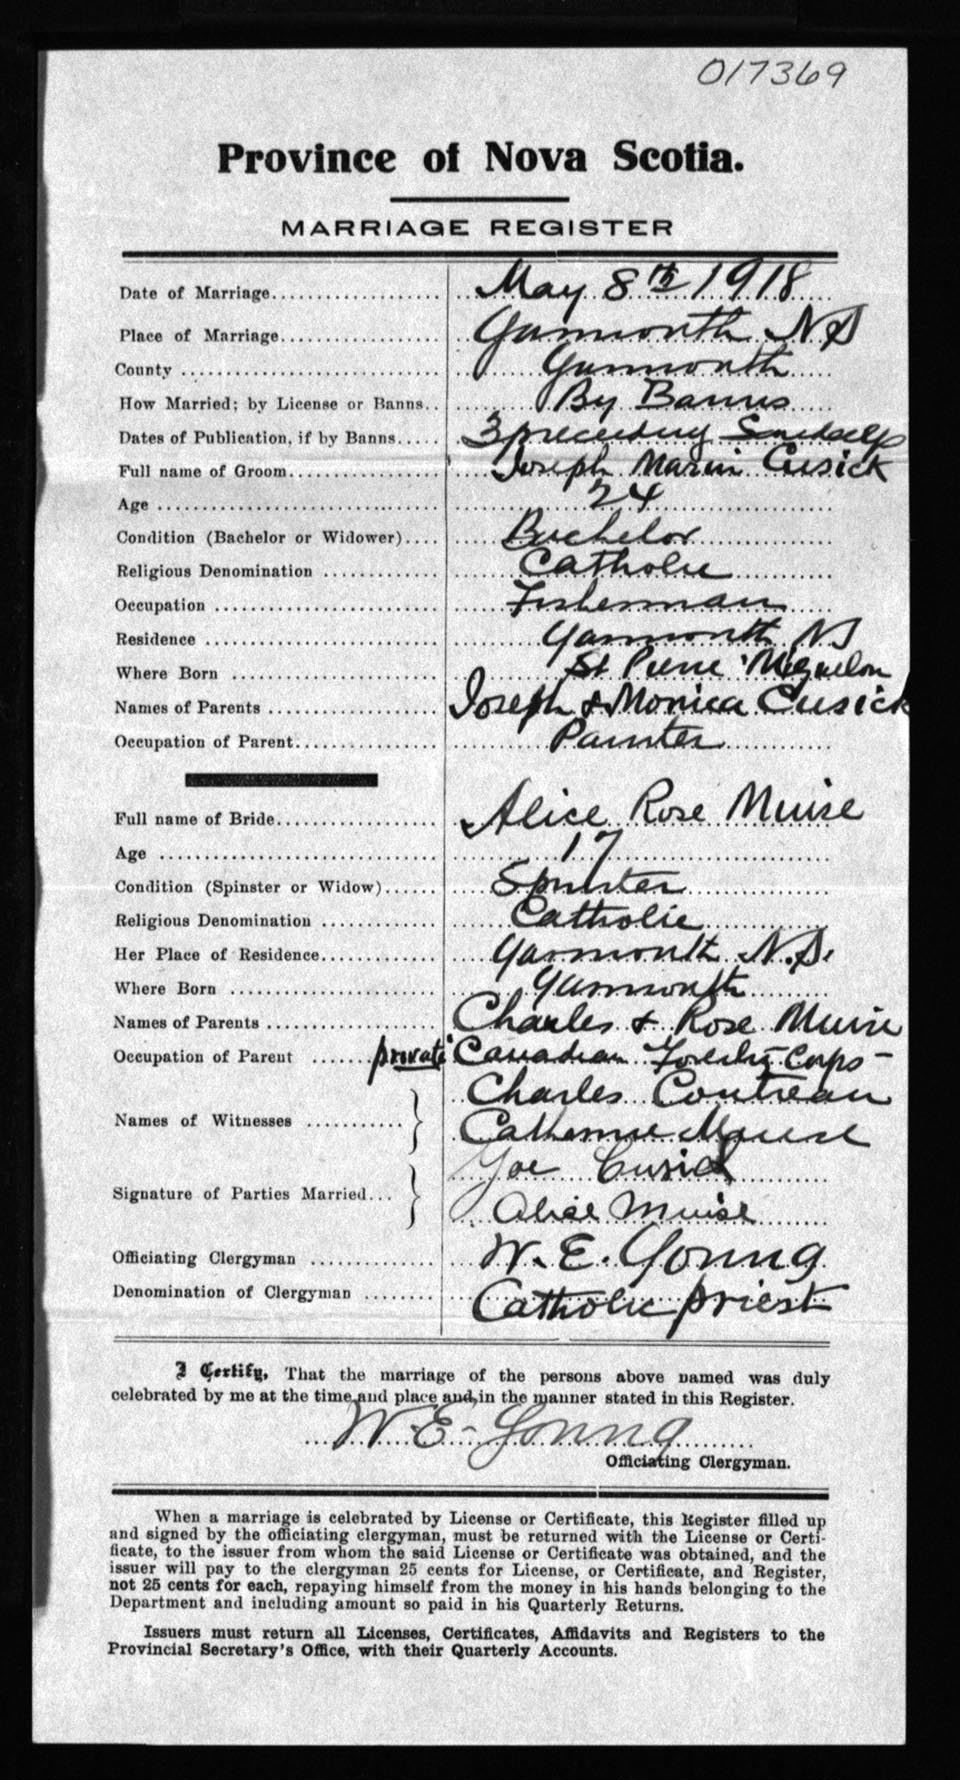 017369
Province of Nova Scotia.
MARRIAGE REGISTER
Date of Marriage.................... May 8th 1918
Place of Marriage................... Yarmouth N S
County .............................. Yarmouth
How Married; by License or Banns.. By Banns
Dates of Publication, if by Banns..... 3 preceeding
Full name of Groom.................. Joseph Marin Cusick
Age .................................. 24
Condition (Bachelor or Widower).... Bachelor
Religious Denomination ............. Catholic
Occupation .......................... Fisherman
Residence ........................... Yarmouth NS
Where Born ........................ St Pierre Miquelon
Names of Parents ................... Joseph & Monica Cusick
Occupation of Parent................. Painter
Full name of Bride................... Alice Rose Muise
Age .................................. 17
Condition (Spinster or Widow)...... Spinster
Religious Denomination ............. Catholic
Her Place of Residence.............. Yarmouth N.S.
Where Born ........................ Yarmouth
Names of Parents ................... Charles & Rose Muise
Occupation of Parent ...... private Canadian Forestry Corps -
Charles Coutreau
Names of Witnesses ........... } Catherine Muise
Joe Cusick
Signature of Parties Married... } Alice Muise
Officiating Clergyman .............. W. E. Young
Denomination of Clergyman ........ Catholic priest
I Certify, That the marriage of the persons above named was duly
celebrated by me at the time and place and in the manner stated in this Register.
W. E. Young
Officiating Clergyman.
When a marriage is celebrated by License or Certificate, this Register filled up
and signed by the officiating clergyman, must be returned with the License or Certi-
ficate, to the issuer from whom the said License or Certificate was obtained, and the
issuer will pay to the clergyman 25 cents for License, or Certificate, and Register,
not 25 cents for each, repaying himself from the money in his hands belonging to the
Department and including amount so paid in his Quarterly Returns.
Issuers must return all Licenses, Certificates, Affidavits and Registers to the
Provincial Secretary's Office, with their Quarterly Accounts.